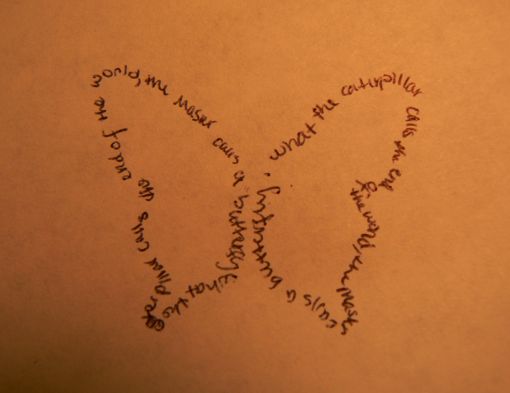 what the caterpillar calls the end of the world, the Master calls a butterfly.
what the caterpillar calls the end of the world, the Master calls a butterfly